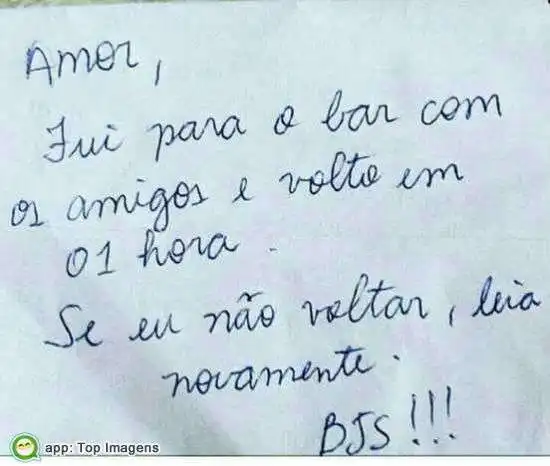 Amor,
Fui para o bar com
os amigos e volto em
01 hora.
Se eu não voltar, leia
novamente.
BJS!!!
app: Top Imagens